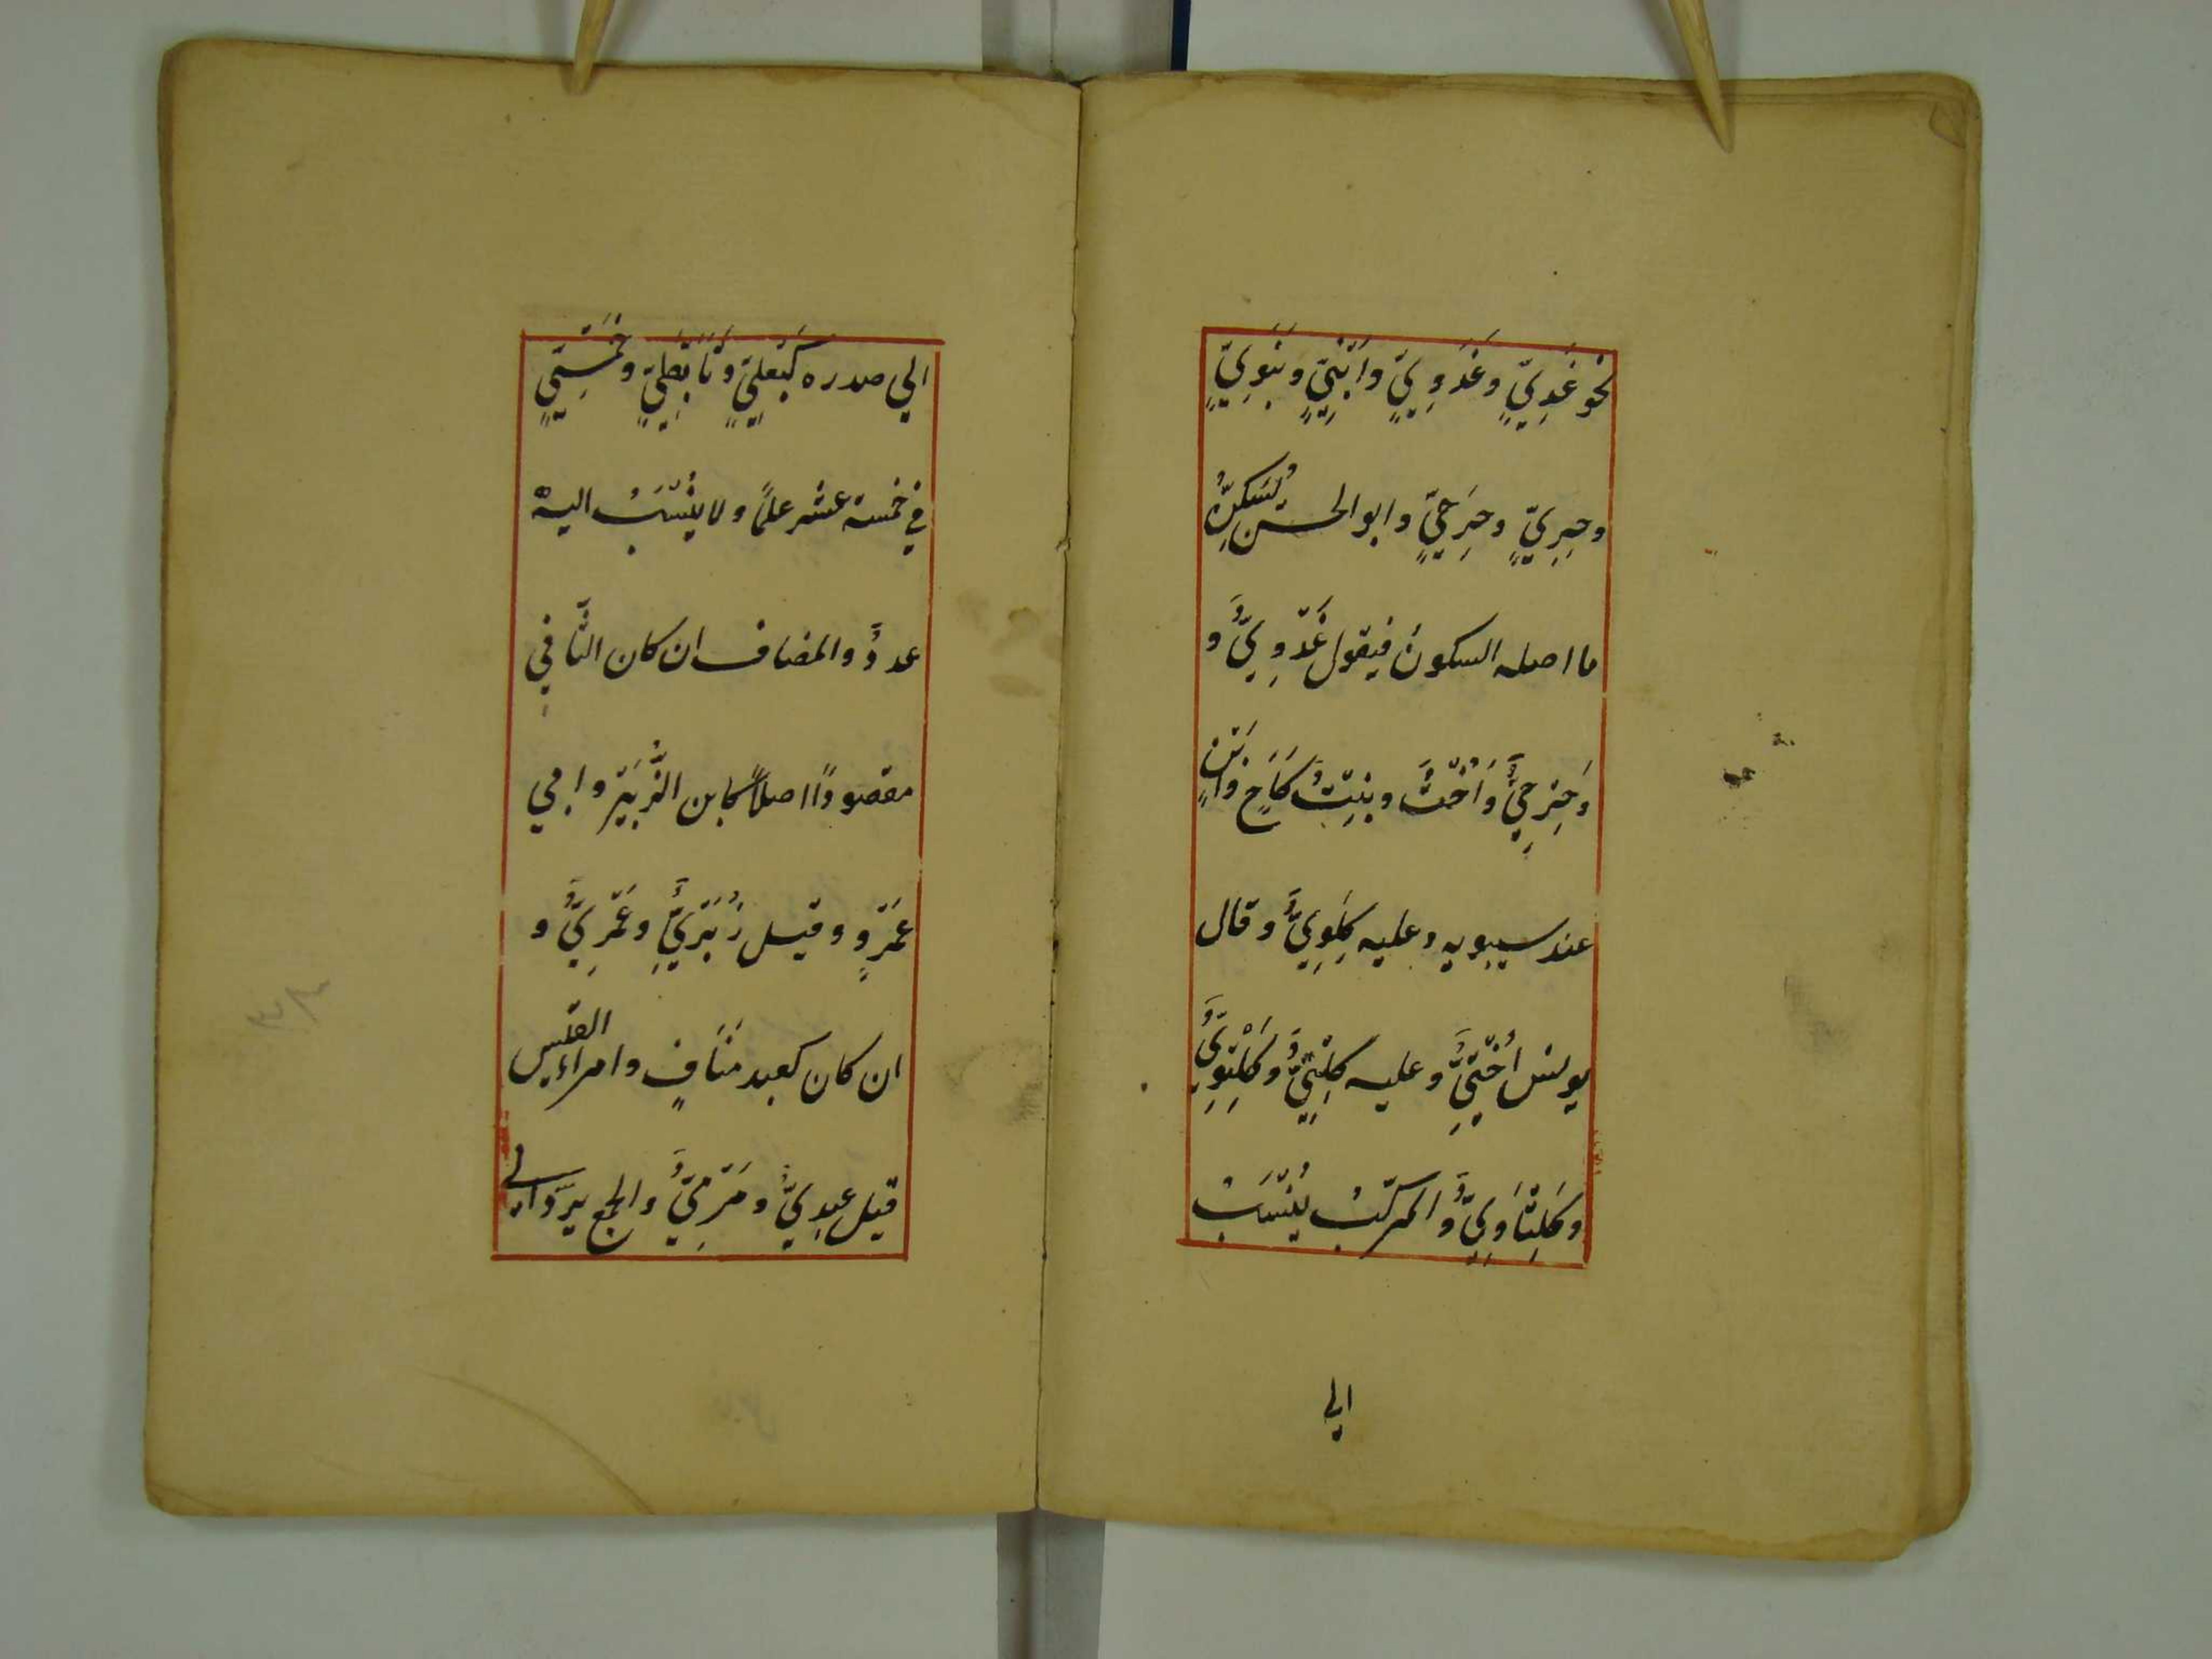 نحو غَدِيٍّ وغَدَوِيٍّ وابْنِيٍّ وبَنَوِيٍّ
وحِرِيٍّ وحِرَحِيٍّ وابو الحسن يُسَكِّنُ
ما اصله السكون فيقول غَدْوِيٌّ و
وحِرْحِيٌّ وَاُخْتٌ وبِنْتٌ كَاَخٍ وَابْنٍ
عند سيبويه وعليه كِلَوِيٌّ وقال
يونس اُخْتِيٌّ وعليه كِلْتِيٌّ وكِلْتَوِيٌّ
وكِلْتَاوِيٌّ والمركّبُ يُنْسَبُ
الي
الي صدره كَبَعْلِيٍّ وتَاَبَّطِيٍّ وخَمْسِيٍّ
في خمسة عشر علمًا ولا يُنْسَبُ اليه
عددًا والمضاف ان كان الثاني
مقصودًا اصلاً كابن الزُّبَيْرِ وابي
عَمْرٍو وقيل زُبَيْرِيٌّ وعَمْرِيٌّ و
ان كان كعبد مَنَافٍ وامراء القيس
قيل عبدِيٌّ ومَرْمِيٌّ والجمع يردّ الي